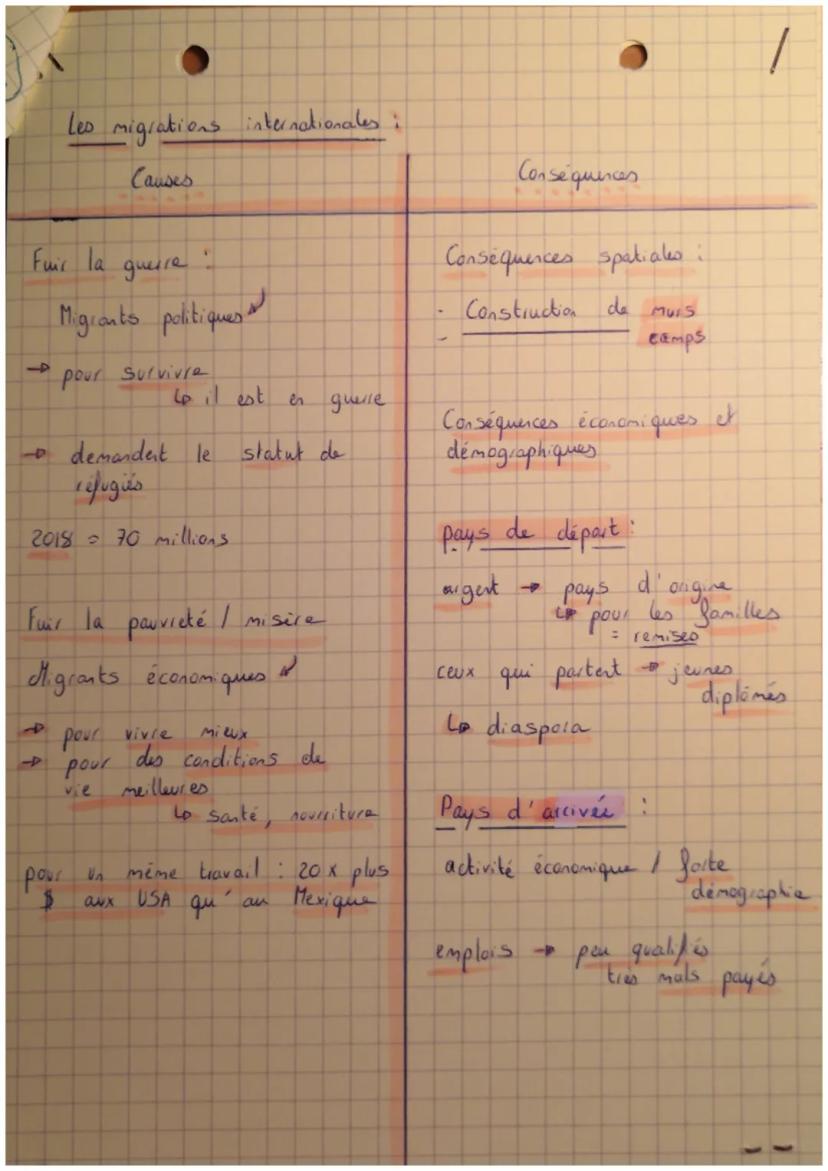 Les migrations internationales :
Causes
Fuir la guerre :
Migrants politiques
→ pour survivre
↳ il est en guerre
→ demandent le statut de
réfugiés
2018 = 70 millions
Fuir la pauvreté / misère
Migrants économiques
→ pour vivre mieux
→ pour des conditions de
vie meilleures
↳ santé, nourriture
pour un même travail : 20 x plus
$ aux USA qu'au Mexique
Conséquences
Conséquences spatiales :
- Construction de murs
- camps
Conséquences économiques et
démographiques
pays de départ :
argent → pays d'origine
↳ pour les familles
= remises
ceux qui partent → jeunes
diplômés
↳ diaspora
Pays d'arrivée :
activité économique / forte
démographie
emplois → peu qualifiés
très mals payés